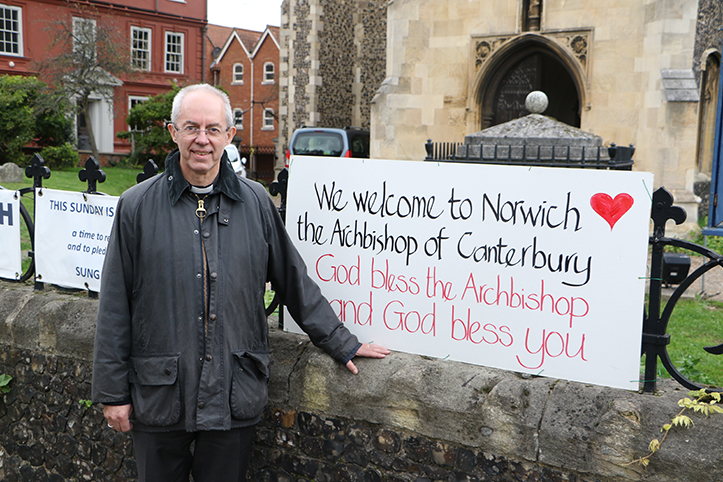 H
THIS SUNDAY IS
a time to re
and to pledg
SUNG
We welcome to Norwich
the Archbishop of Canterbury
God bless the Archbishop
and God bless you